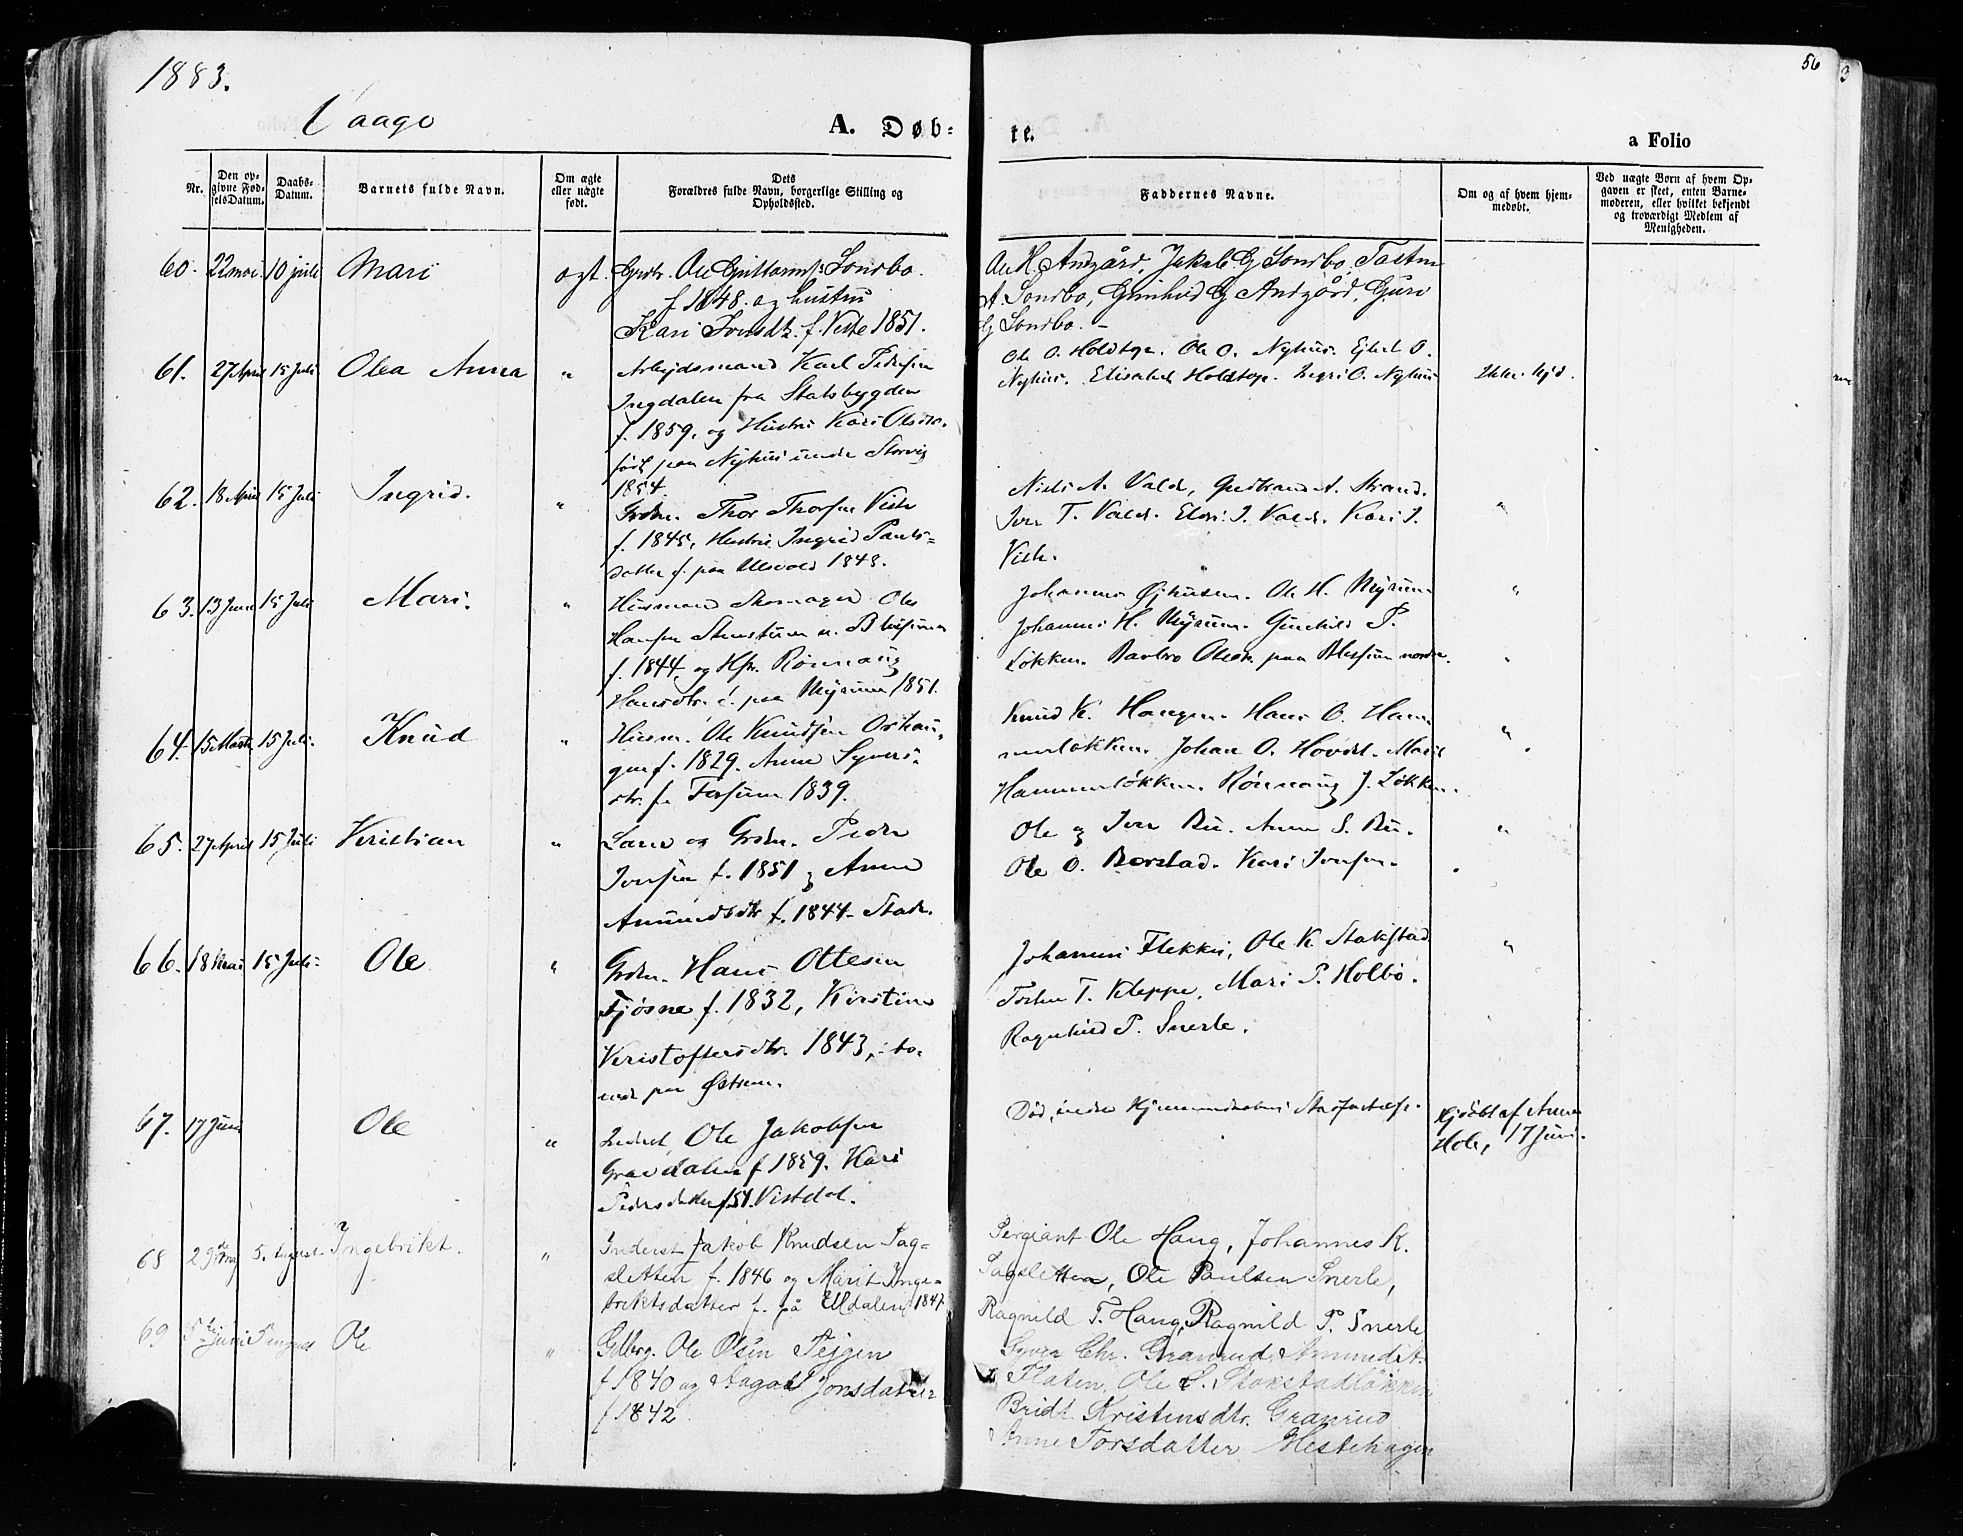 1883.
56
Vaage
A. Døb-
te.
a Folio
Nr.
Den op-
givne Fød-
selsDatum.
Daabs-
Datum.
Barnets fulde Navn.
Om ægte
eller uægte
født.
Dets
Forældres fulde Navn, borgerlige Stilling og
Opholdssted.
Faddernes Navne.
Om og af hvem hjem-
medøbt.
Ved uægte Børn af hvem Op-
gaven er skeet, enten Barne-
moderen, eller hvilket bekjendt
og troværdigt Medlem af
Menigheden.
60. 22 mai 10 juli Mari ægt. Gbr. Ole Guttormsen Sondbo
f 1848. og hustru
Kari f. Viste 1851.
Ole H. Andgård, Jakob G Sondbo,
Sondbo, G Andgård, Guri
G Sondbo. -
61. 27 April 15 Juli Olea Anna " Arbeidsmand Karl Pedersen
Ingdalen fra Statsbygden
f. 1859, og Hustru Kari Olsdtr.
født paa Nyhus under Storvig
1854.
Ole O. Ole O. Nyhus. O.
Nyhus. Elisabet O. Nyhus
Ikke hjd.
62. 18 April 15 Juli Ingrid. " Grdm. Thor Thorsen Viste
f. 1845, Hustru Ingrid Pauls-
datter f. paa Ulsvold 1848.
Niels A. Valde, Gudbrand A. Strand.
Iver T. Valde. Eldri I. Valde. Kari I.
Viste.
"
63. 13 Juni 15 Juli Mari. " Husmand Skomager Ole
Hansen u. Blessum
f. 1844, og Hstr. Rønnaug
Hansdtr. f. paa Myrum 1851.
Johannes Øihusen. Ole H. Myrum
Johannes H. Myrum. Gunhild P.
Løkken. Barbro Olsdtr. paa Blessum nordre.
"
"
64. 15 Marts 15 Juli. Knud " Husm. Ole Knudsen Orhau-
gen f. 1829. Anne Syvers-
dtr. f. Forsum 1839.
Knud K. Haugen. Hans O. Ham-
merløkken. Johan O. Hovde. Marit
Hammerløkken. Rønnaug J. Løkken.
"
65. 27 April 15 Juli Kristian " og Grdm. Peder
Iversen f. 1851 og Anne
Amundsdtr f. 1844 - Stade.
Ole og Iver Bu. Anne S. Bu.
Ole O. Borstad. Kari Iversen.
"
66. 18 Mai 15 Juli. Ole " Grdm. Hans Ottesen
Tjøsne f. 1832, Kirstine
Kristoffersdtr. 1843, - bo-
ende paa Østrem.
Johannes Flekkøi, Ole K. Stakstad
Tosten T. Kleppe, Mari P. Holbø.
Ragnhild P. Snerle.
"
67. 17 Juni Ole " Inderst, Ole Jakobsen
Gravdalen f 1859. Kari
Pedersdatter f 51. Vistdal.
Død, inden Hjemmedaabens Stadfæstelse.
Hjdøbt af Anne
Hole, 17 Juni.
68 29de Maj 5. August Ingebrikt. " Inderst Jakob Knudsen Sag-
sletten f. 1846 og Marit Inge-
briktsdatter f. på Uldalen 1847
Sergiant Ole Haug, Johannes K.
Sagsletten, Ole Paulsen Snerle,
Ragnild T. Haug, Ragnild P. Snerle
69 5te Juni 5 august Ole " Glbrg. Ole Olsen Tejgen
f 1840 og Aagot Jonsdatter
f 1842
Syver Chr. Granrud, Amund A.
Flaten, Ole S. Stakstadløkken
Bridt Kristensdtr. Granrud
Anne Torsdatter Hestehagen